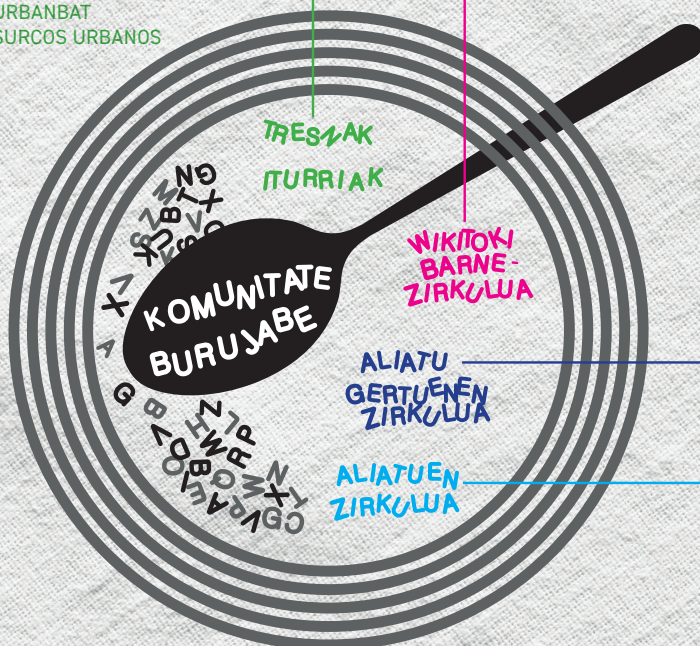 URBANBAT
SURCOS URBANOS
TRESNAK
ITURRIAK
WIKITOKI
BARNE-
ZIRKULUA
KOMUNITATE
BURUJABE
ALIATU
GERTUENEN
ZIRKULUA
ALIATUEN
ZIRKULUA